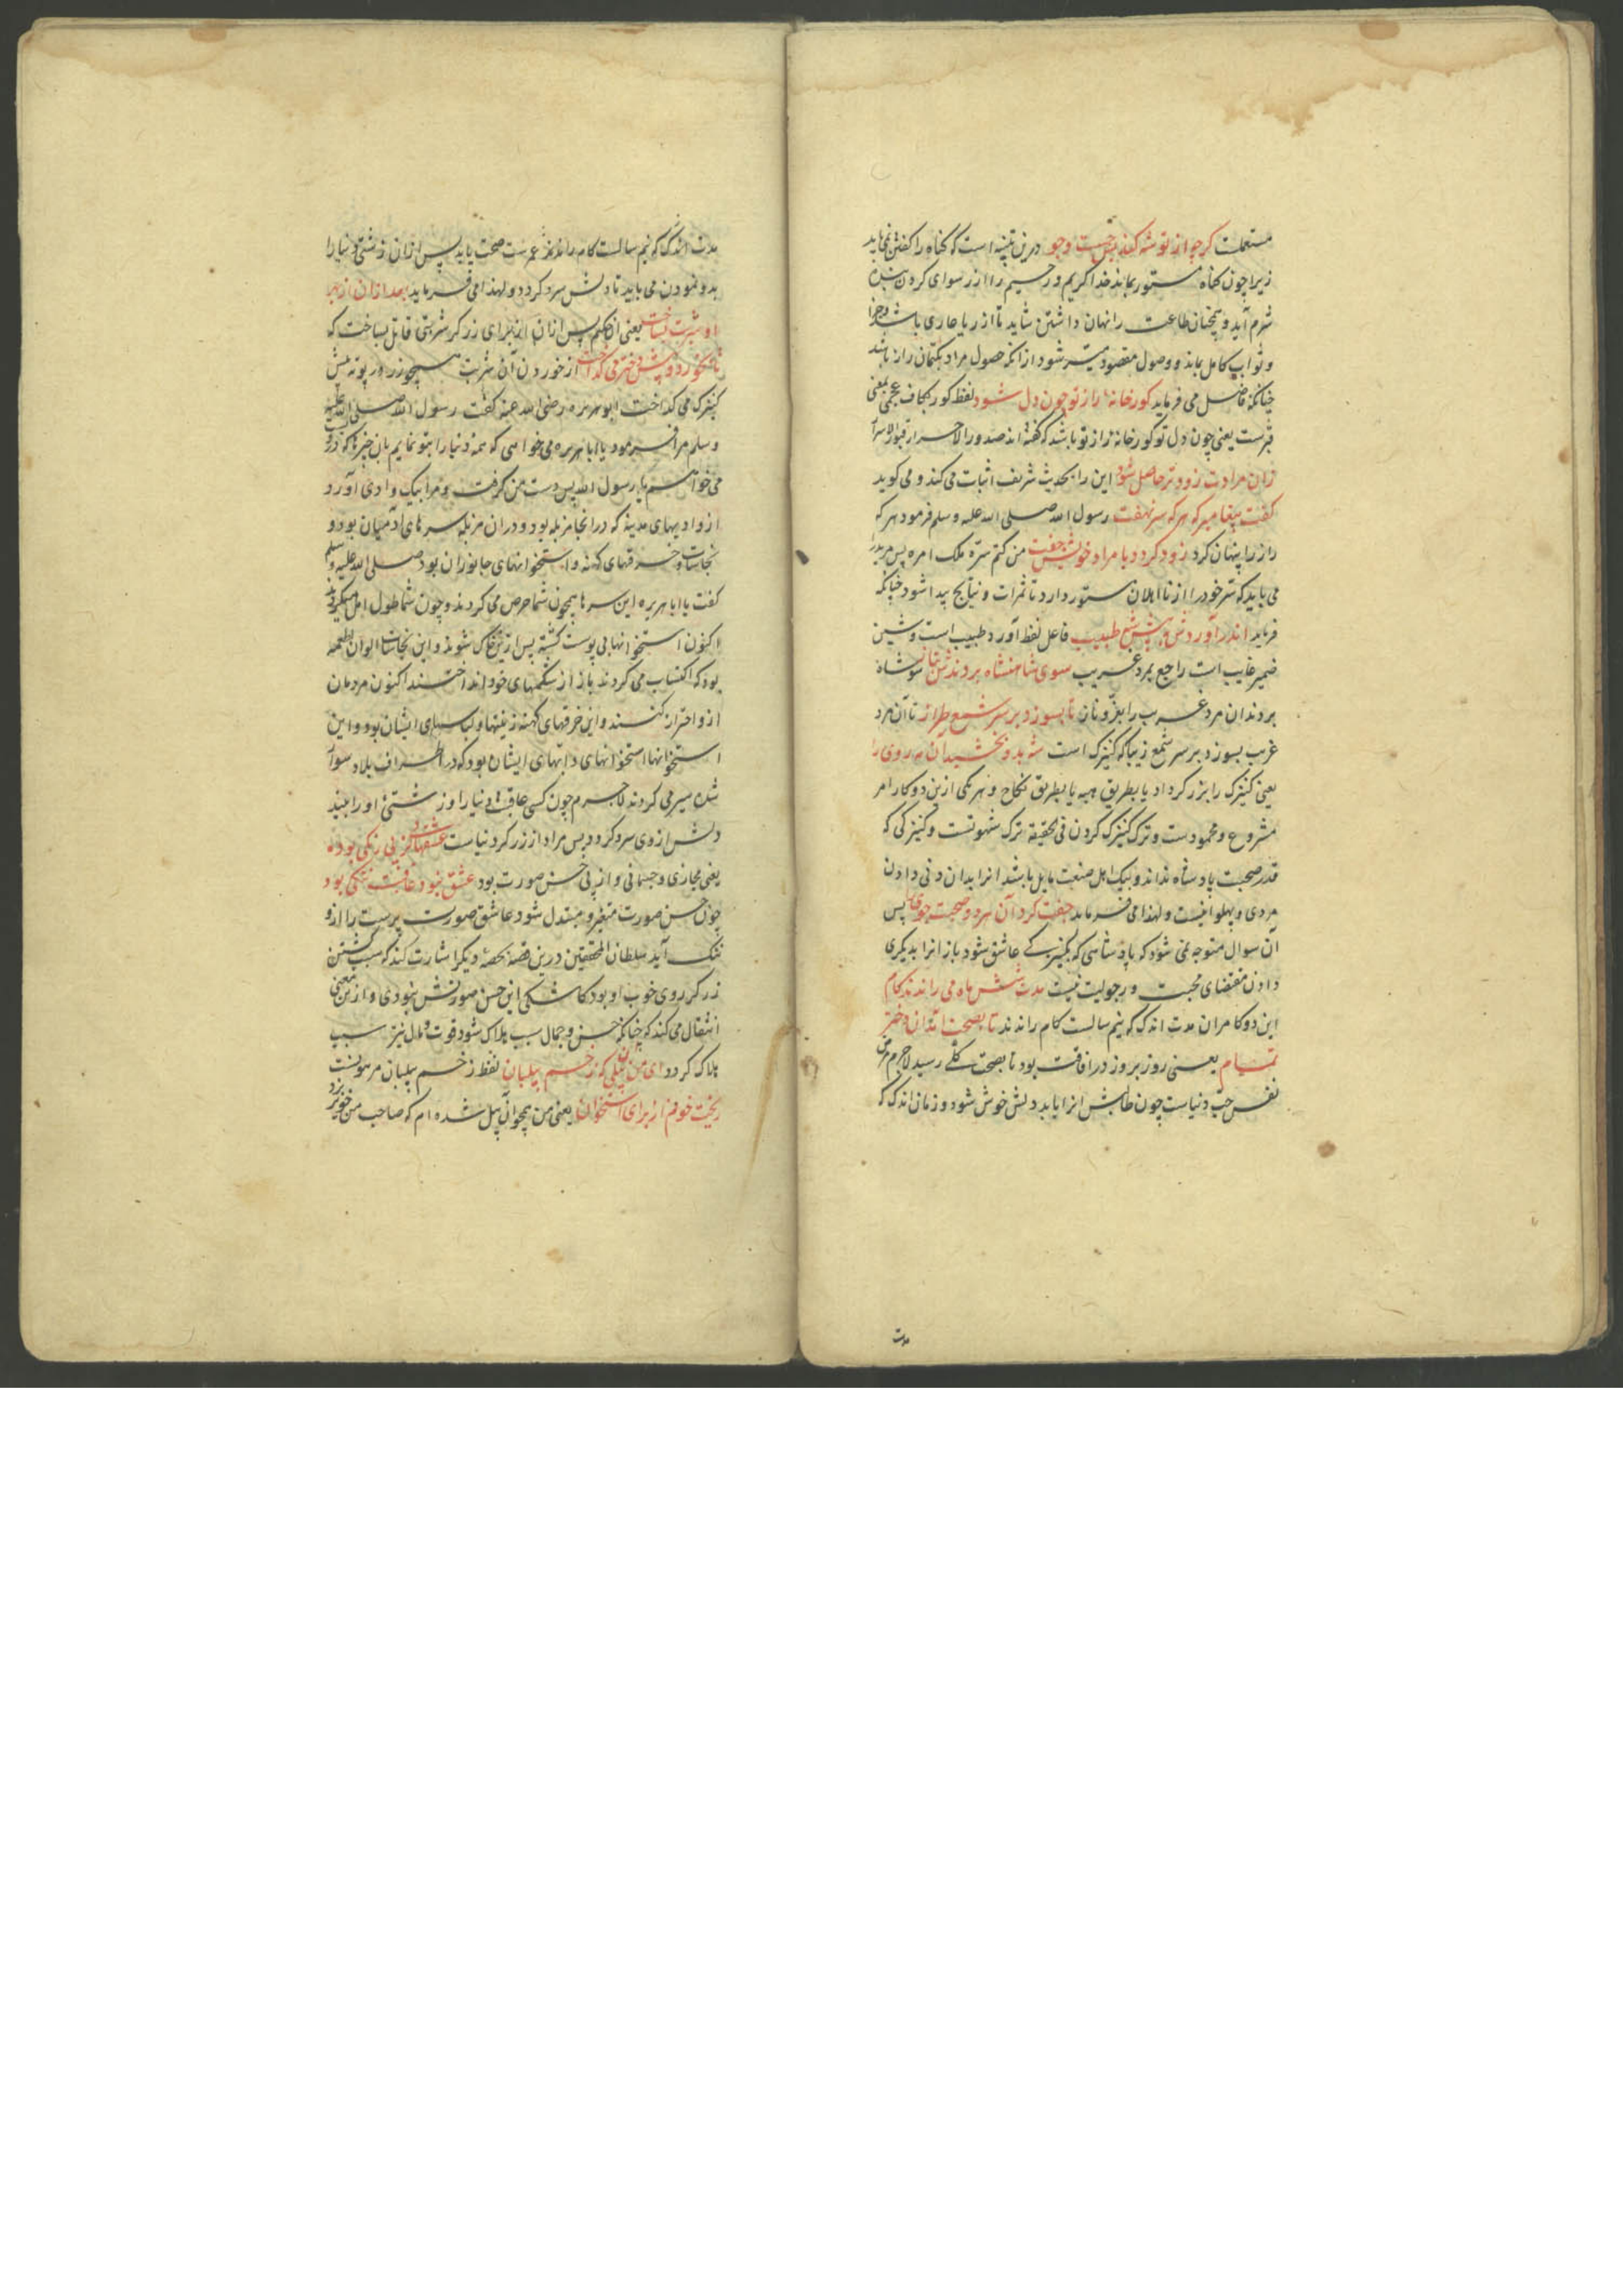 مستعملت کرچه از تو شه کند بس جست و جو درین تنبیه است که کناه را کفتن نمی باید
زیرا چون کناه مستور بماند خدا کریم و رحیم را از رسوای کردن بنده
شرم آید و همچنان طاعت را نهان داشتن شاید تا از ریا عاری باشد و جزا
و ثواب کامل بماند و وصول مقصود میسر شود از انکه حصول مراد بکتمان راز باشد
چنانکه فاضل می فرماید کورخانه راز تو چون دل شود لفظ کور بکاف عجمی بمعنی
قبرست یعنی چون دل تو کورخانه راز تو باشد که کفته اند صدور الاحرار قبور الاسرار
زان مرادت زودتر حاصل شود این را بحدیث شریف اثبات می کند و می کوید
کفت پیغامبر که هر که سر نهفت رسول الله صلی الله علیه وسلم فرمود هر که
راز را پنهان کرد زود کردد با مراد خویش جفت من کتم سره ملک امره پس مرید را
می باید که سر خود را از نااهلان مستور دارد تا ثمرات و نتایج پیدا شود چنانکه
فرماید اندر آوردش به پیش شه طبیب فاعل لفظ آورد طبیب است و شین
ضمیر غایب است راجع بمرد غریب سوی شاهنشاه بردندش بناز سوی شاه
بردند ان مرد غریب را بعز و ناز تا بسوزد بر سر شمع طراز تا آن مرد
غریب بسوزد بر سر شمع زیبا که کنیزک است شه بدو بخشید آن مه روی را
یعنی کنیزک را بزرکر داد یا بطریق هبه یا بطریق نکاح و هر یکی ازین دو کار امر
مشروع و محمودست و ترک کنیزک کردن فی الحقیقه ترک شهوتست و کنیزکی که
قدر صحبت پادشاه نداند و بیک اهل صنعت مایل باشد انرا بدان دنی دادن
مردی و پهلوانیست و لهذا می فرماید جفت کرد آن هر دو صحبت جوی را پس
آن سوال متوجه نمی شود که پادشاهی که بکنیزکی عاشق شود باز انرا بدیکری
دادن مقتضای محبت و رجولیت نیست مدت شش ماه می راندند کام
این دو کامران مدت اندک که نیم سالست کام راندند تا بصحت آمد ان دختر
تمام یعنی روز بروز در افاقت بود تا بصحت کلی رسید لاجرم مرض
نفس حب دنیاست چون طالبش انرا یابد دلش خوش شود و زمان اندک که
مدت
مدت اندک که نیم سالست کام راندند عمرست صحت یابد پس ازان زشتی دنیا را
بدو نمودن می باید تا دلش سرد کردد و لهذا می فرماید بعد ازان از بهر
او شربت بساخت یعنی ان حکیم پس ازان از برای زرکر شربتی قاتل بساخت که
تا بخورد و پیش دختر می کداخت از خوردن آن شربت همچو زر در بوته پیش
کنیزک می کداخت ابو هریره رضی الله عنه کفت رسول الله صلی الله علیه
وسلم مرا فرمود یا ابا هریره می خواهی که همه دنیا را بتو نمایم بان چیزها که دروست
می خواهم یا رسول الله پس دست من کرفت و مرا بیک وادی آورد
از وادیهای مدینه که در انجا مزبله بود و دران مزبله سرهای آدمیان بود و
نجاسات و خرقهای کهنه و استخوانهای جانوران بود صلی الله علیه وسلم
کفت یا ابا هریره این سرها همچون شما حرص می کردند و چون شما طول امل میکردند
اکنون استخوانها بی پوست کشته پس ازین خاک شوند و این نجاسات الوان اطعمه
بود که اکتساب می کردند باز از شکمهای خود انداختند اکنون مردمان
ازو احتراز کنند و این خرقهای کهنه زینتها و لباسهای ایشان بود و این
استخوانها استخوانهای دابتهای ایشان بود که در اطراف بلاد سوار
شده سیر می کردند لاجرم چون کسی عاقبت دنیا را و زشتی او را بیند
دلش ازوی سرد کردد پس مراد از زرکر دنیاست عشقهایی کز پی رنکی بود
یعنی مجازی و جسمانی و از پی حسن صورت بود عشق نبود عاقبت ننکی بود
چون حسن صورت متغیر و مبتدل شود عاشق صورت پرست را ازو
ننک آید سلطان المحققین درین قصه بحصه دیکر اشارت کند که سبب کشتن
زرکر روی خوب او بود کاشکی این حسن صورتش نبودی و ازین معنی
انتقال می کند که چنانکه حسن و جمال سبب هلاک شود قوت و مال نیز سبب
هلاک کردد ای من ان پیلی که زخم پیلبان لفظ زخم پیلبان مرهونست
ریخت خونم از برای استخوان یعنی من همچو آن پیل شده ام که صاحب من خونریزد